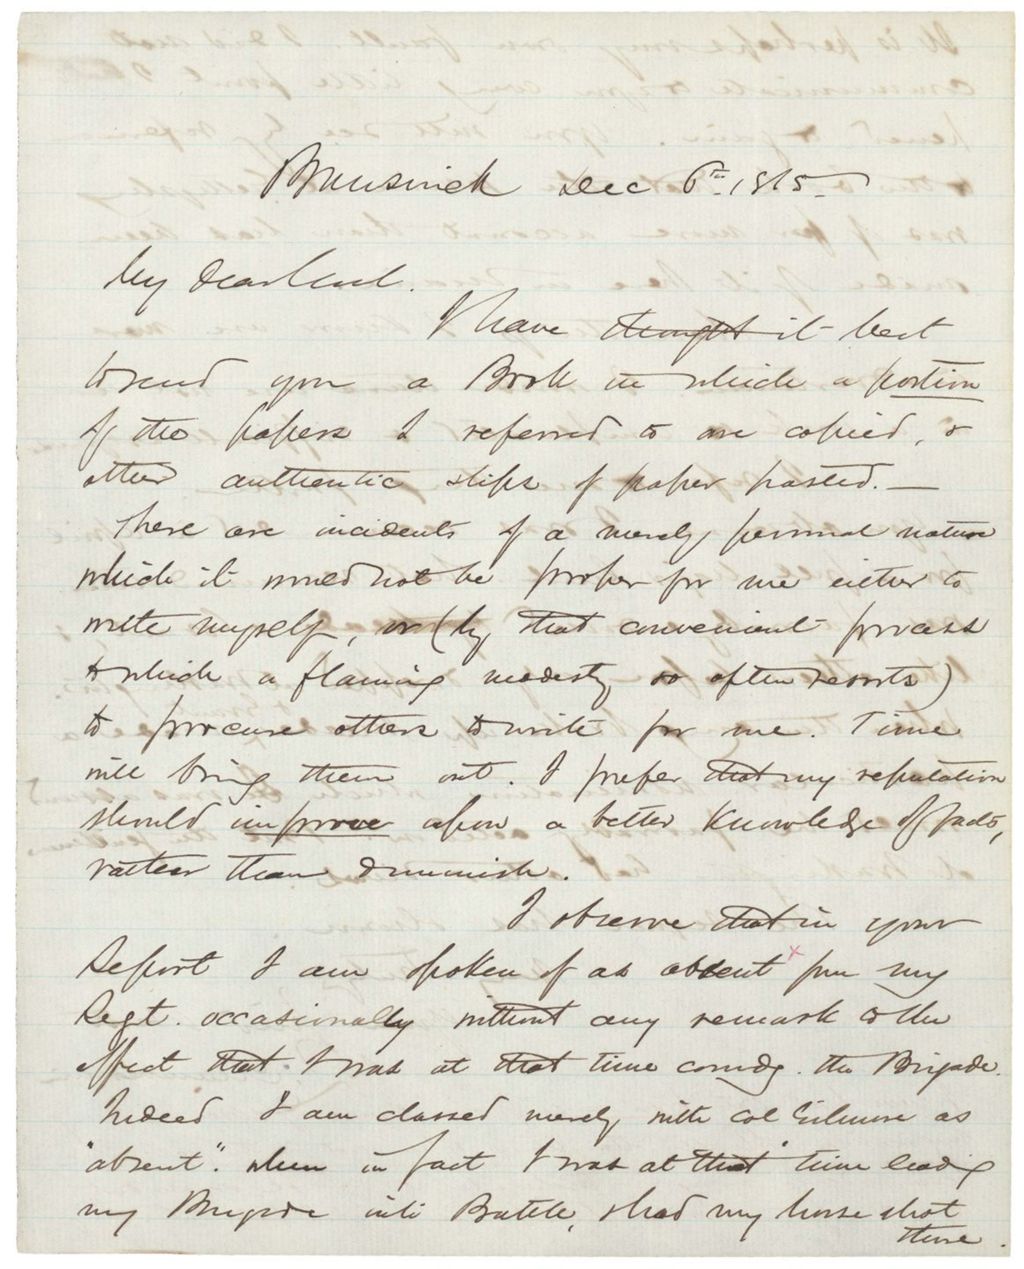 Brunswick Dec 6th. 1865.
My dear Genl.
I have thought it best
to send you a Book in which a portion
of the papers I referred to are copied, &
other authentic slips of paper pasted. —
There are incidents of a merely personal nature
which it would not be proper for me either to
write myself, or (by that convenient process
to which a flaming modesty so often resorts)
to procure others to write for me. Time
will bring them out. I prefer that my reputation
should improve upon a better knowledge of facts,
rather than diminish.
I observe that in your
Report I am spoken of as absent from my
Regt. occasionally without any remark to the
effect that I was at that time comdg. the Brigade.
Indeed I am classed merely with Col Gilmore as
"absent". when in fact I was at that time leading
my Brigade into Battle, & had my horse shot
there.